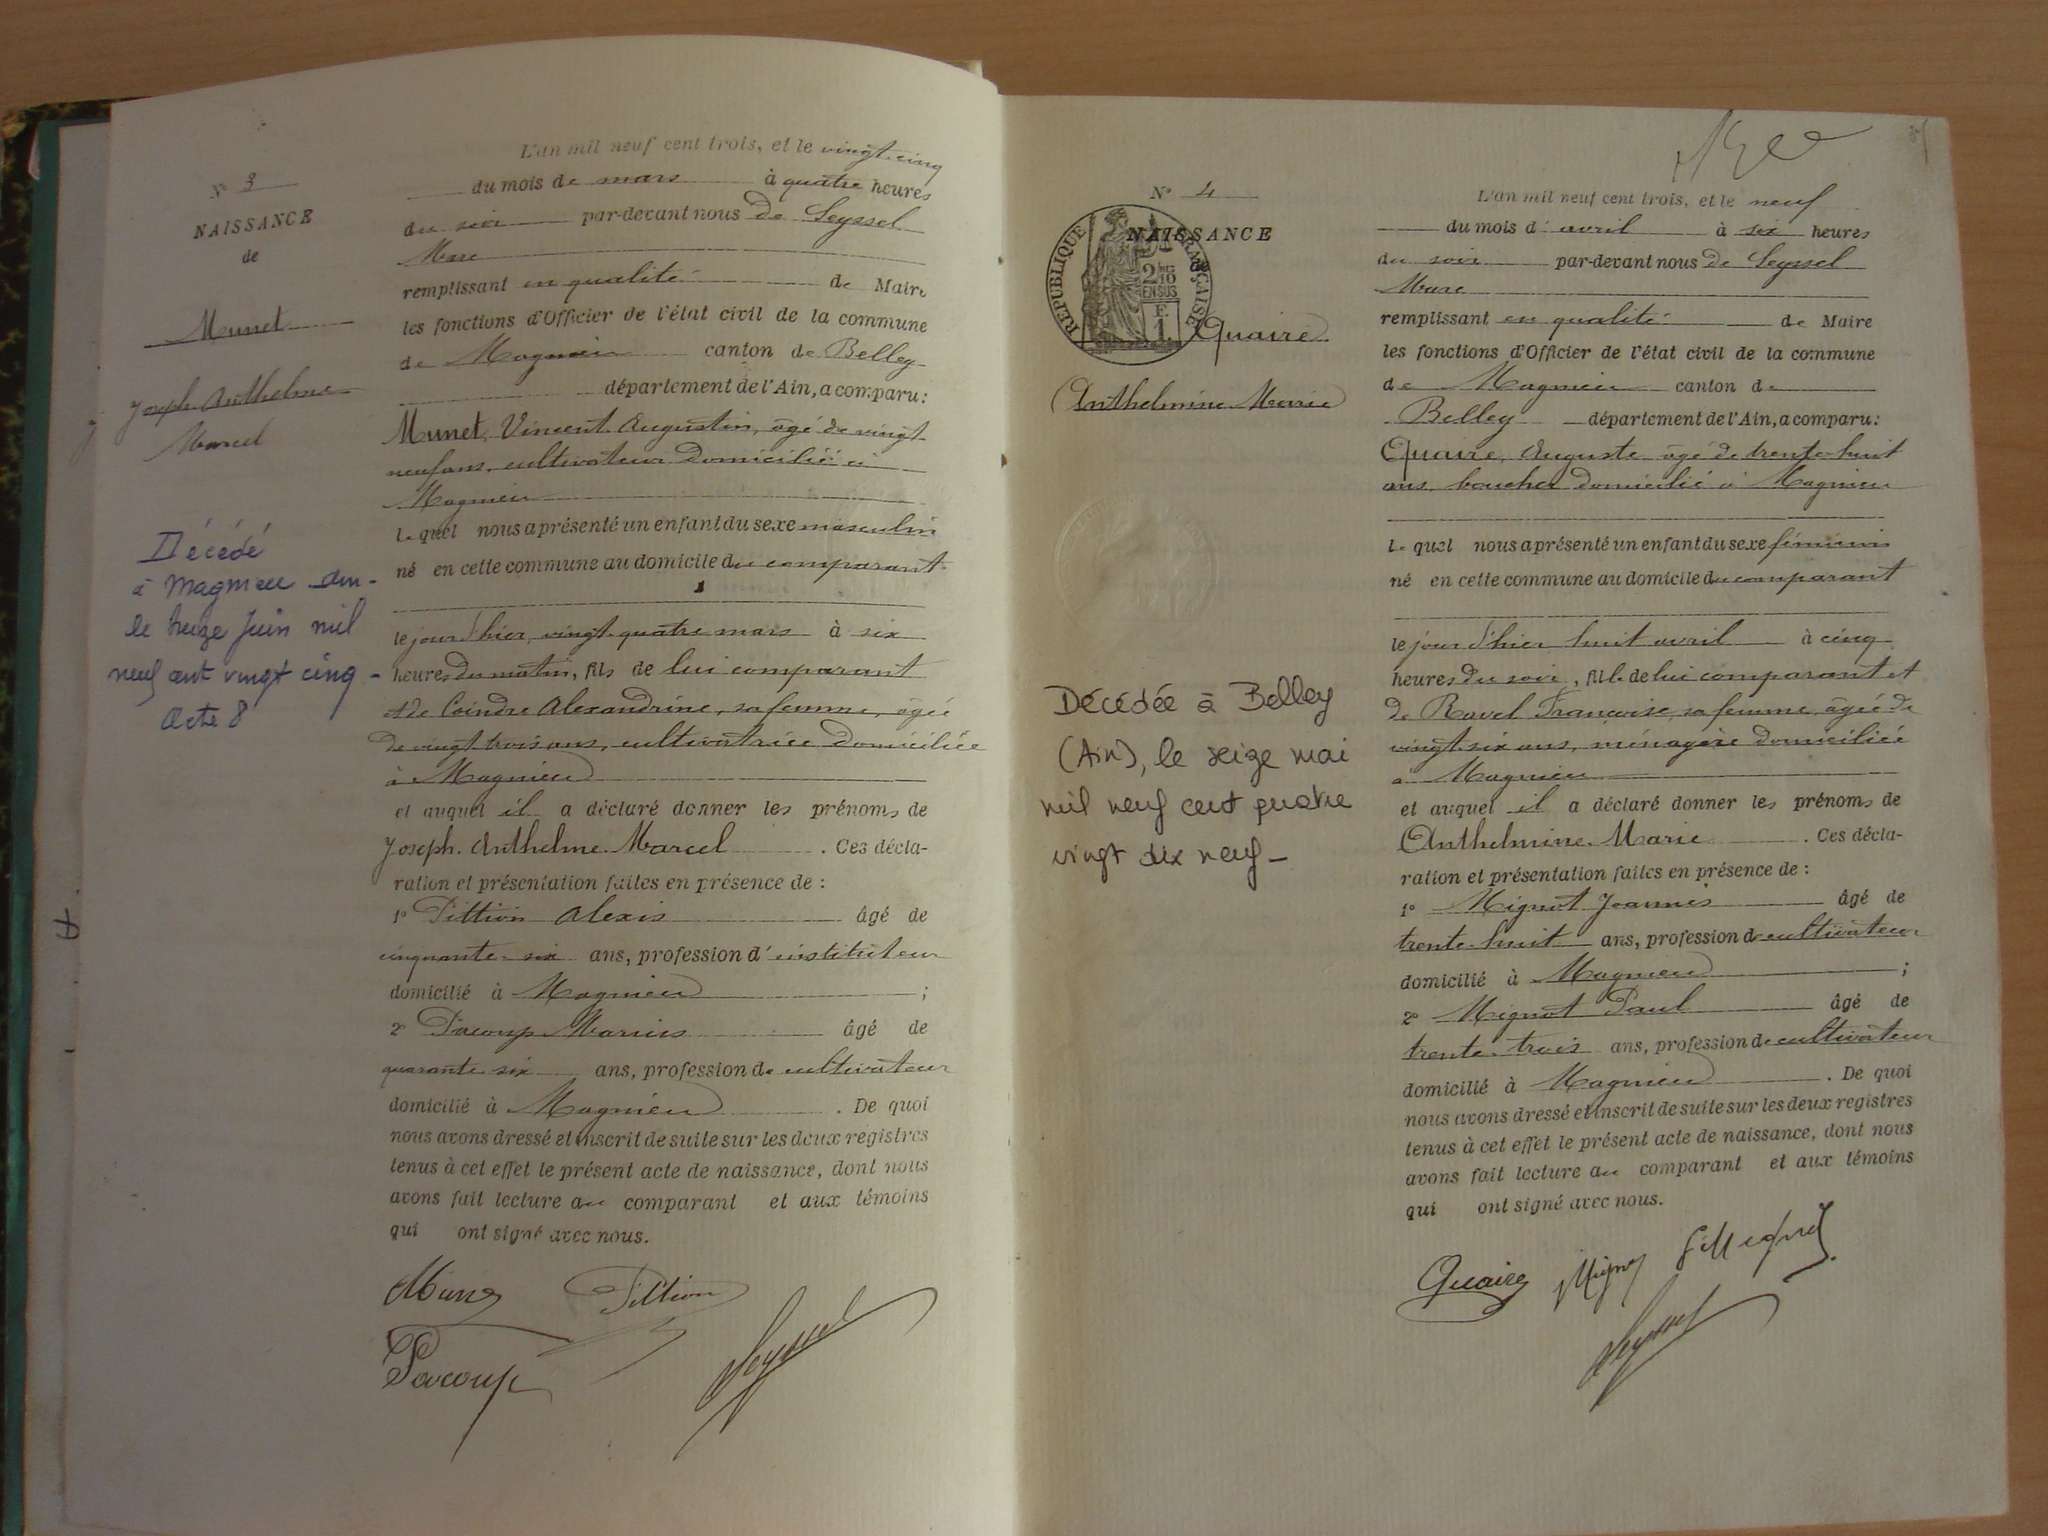 N° 3
NAISSANCE
de
Munet
Joseph Anthelme
Marcel
Décédé
à Magnieu Ain -
le treize Juin mil
neuf cent vingt cinq -
Acte 8
L'an mil neuf cent trois, et le vingt-cinq
du mois de mars à quatre heures
du soir par-devant nous De Seyssel
Marc
remplissant en qualité de Maire
les fonctions d'Officier de l'état civil de la commune
de Magnieu canton de Belley
département de l'Ain, a comparu:
Munet, Vincent Augustin, âgé de vingt
neuf ans, cultivateur domicilié à
Magnieu
lequel nous a présenté un enfant du sexe masculin
né en cette commune au domicile du comparant
le jour d'hier, vingt-quatre mars à six
heures du matin, fils de lui comparant
et de Coindre Alexandrine, sa femme, âgée
de vingt trois ans, cultivatrice domiciliée
à Magnieu
et auquel il a déclaré donner les prénoms de
Joseph. Anthelme. Marcel. Ces décla-
ration et présentation faites en présence de :
1° Pittion Alexis âgé de
cinquante-six ans, profession d'instituteur
domicilié à Magnieu ;
2° Pacoup Marius âgé de
quarante-six ans, profession de cultivateur
domicilié à Magnieu. De quoi
nous avons dressé et inscrit de suite sur les deux registres
tenus à cet effet le présent acte de naissance, dont nous
avons fait lecture au comparant et aux témoins
qui ont signé avec nous.
Munet Pittion
Pacoup Seyssel
N° 4
NAISSANCE
de
RÉPUBLIQUE FRANÇAISE
2/10
EN SUS
F.
1.
Quaire
Anthelmine Marie
Décédée à Belley
(Ain), le seize mai
mil neuf cent quatre
vingt dix neuf -
L'an mil neuf cent trois, et le neuf
du mois d'avril à six heures
du soir par-devant nous de Seyssel
Marc
remplissant en qualité de Maire
les fonctions d'Officier de l'état civil de la commune
de Magnieu canton de
Belley département de l'Ain, a comparu:
Quaire, Auguste âgé de trente-huit
ans, boucher domicilié à Magnieu
lequel nous a présenté un enfant du sexe féminin
né en cette commune au domicile du comparant
le jour d'hier huit avril à cinq
heures du soir, fille de lui comparant et
de Ravel Françoise, sa femme, âgée de
vingt-six ans, ménagère domiciliée
à Magnieu
et auquel il a déclaré donner les prénoms de
Anthelmine. Marie. Ces décla-
ration et présentation faites en présence de :
1° Mignot Joannès âgé de
trente-huit ans, profession de cultivateur
domicilié à Magnieu ;
2° Mignot Paul âgé de
trente-trois ans, profession de cultivateur
domicilié à Magnieu. De quoi
nous avons dressé et inscrit de suite sur les deux registres
tenus à cet effet le présent acte de naissance, dont nous
avons fait lecture au comparant et aux témoins
qui ont signé avec nous.
Quaire Mignot Mignot
Seyssel